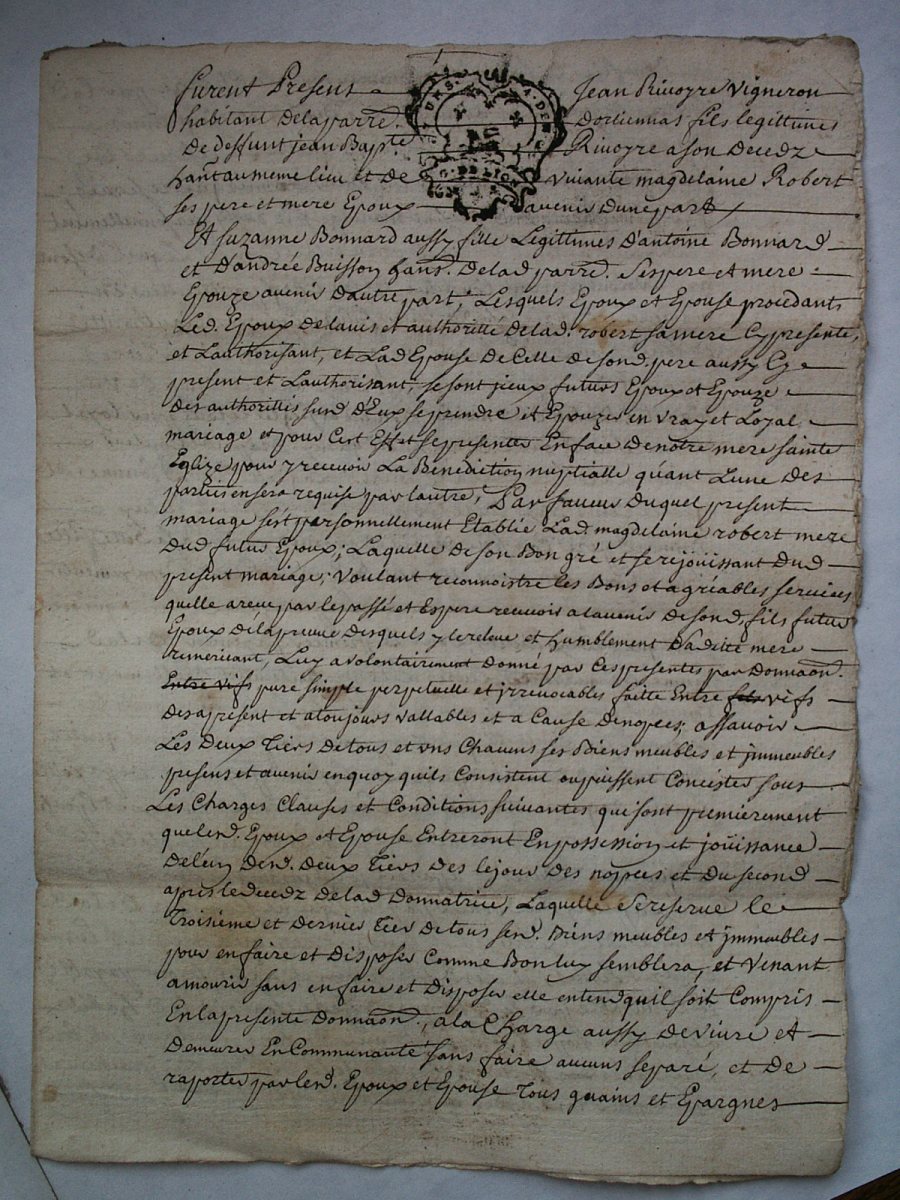 furent Presens Jean Rivoyre vigneron
habitant delaparre. dortiennas fils legittimes
De deffunt jean Bapte Rivoyre a son decedz
hant au meme lieu et de vivante magdelaine Robert
ses pere et mere Epoux avenir dune part
Et suzanne Bonnard aussy fille Legittimes d'antoine Bonnard
et d'andrée Buisson hans. Delad parre. ses pere et mere
Epouze avenir dautre part, Lesquels Epoux et Epouse procedants
Led. Epoux de lavis et authorité delad. robert sa mere Cy presente,
et Lauthorisant, et Lad Epouse de Celle de sond. pere aussy Cy
present et Lauthorisant, se sont jceux futurs Epoux et Epouze
des authorités susd d'Eux se prendre et Epouzer en vray et Loyal
mariage et pour Cest Effet se presenter En face de notre mere sainte
Eglize pour y recevoir La Benediction nuptialle quant Lune des
parties en sera requise par lautre, Par faveur duquel present
mariage s'est personnellement Etablie Lad. magdelaine robert mere
dud futur Epoux; Laquelle de son Bon gré et se rejoüissant dud
present mariage; voulant reconnoistre les Bons et agréables services
quelle a receu par le passé et Espere recevoir a lavenir de sond. fils futur
Epoux de la preuve desquels y le releve et humblement Laditte mere
remerciant, Luy a volontairement donné par Ces presentes par Donnaôn.
Entre vifs pure simple perpetuelle et jrrevocables faitte Entre vifs
des a present et a toujours vallables et a Cause de nopces, assavoir
Les deux Tiers de tous et uns Chacuns ses Biens meubles et jmmeubles
presens et avenir en quoy quils Consistent ou puissent Concister sous
Les Charges Clauses et Conditions suivantes qui sont premierement
que lesd. Epoux et Epouse Entreront En possession et joüissance
de l'un desd. deux Tiers des le jour des nopces et du second
apres le decedz delad Donnatrice, Laquelle se reserve le
Troisième et dernier Tier de tous sesd. Biens meubles et jmmeubles
pour en faire et Disposer Comme Bon luy semblera, et venant
a mourir sans en faire et Disposer elle entend quil soit Compris
En la presente donnaôn, a la Charge aussy de vivre et
demeurer En Communauté sans faire aucuns separé, et de
raporter par lesd. Epoux et Epouse Tous guains et Epargnes